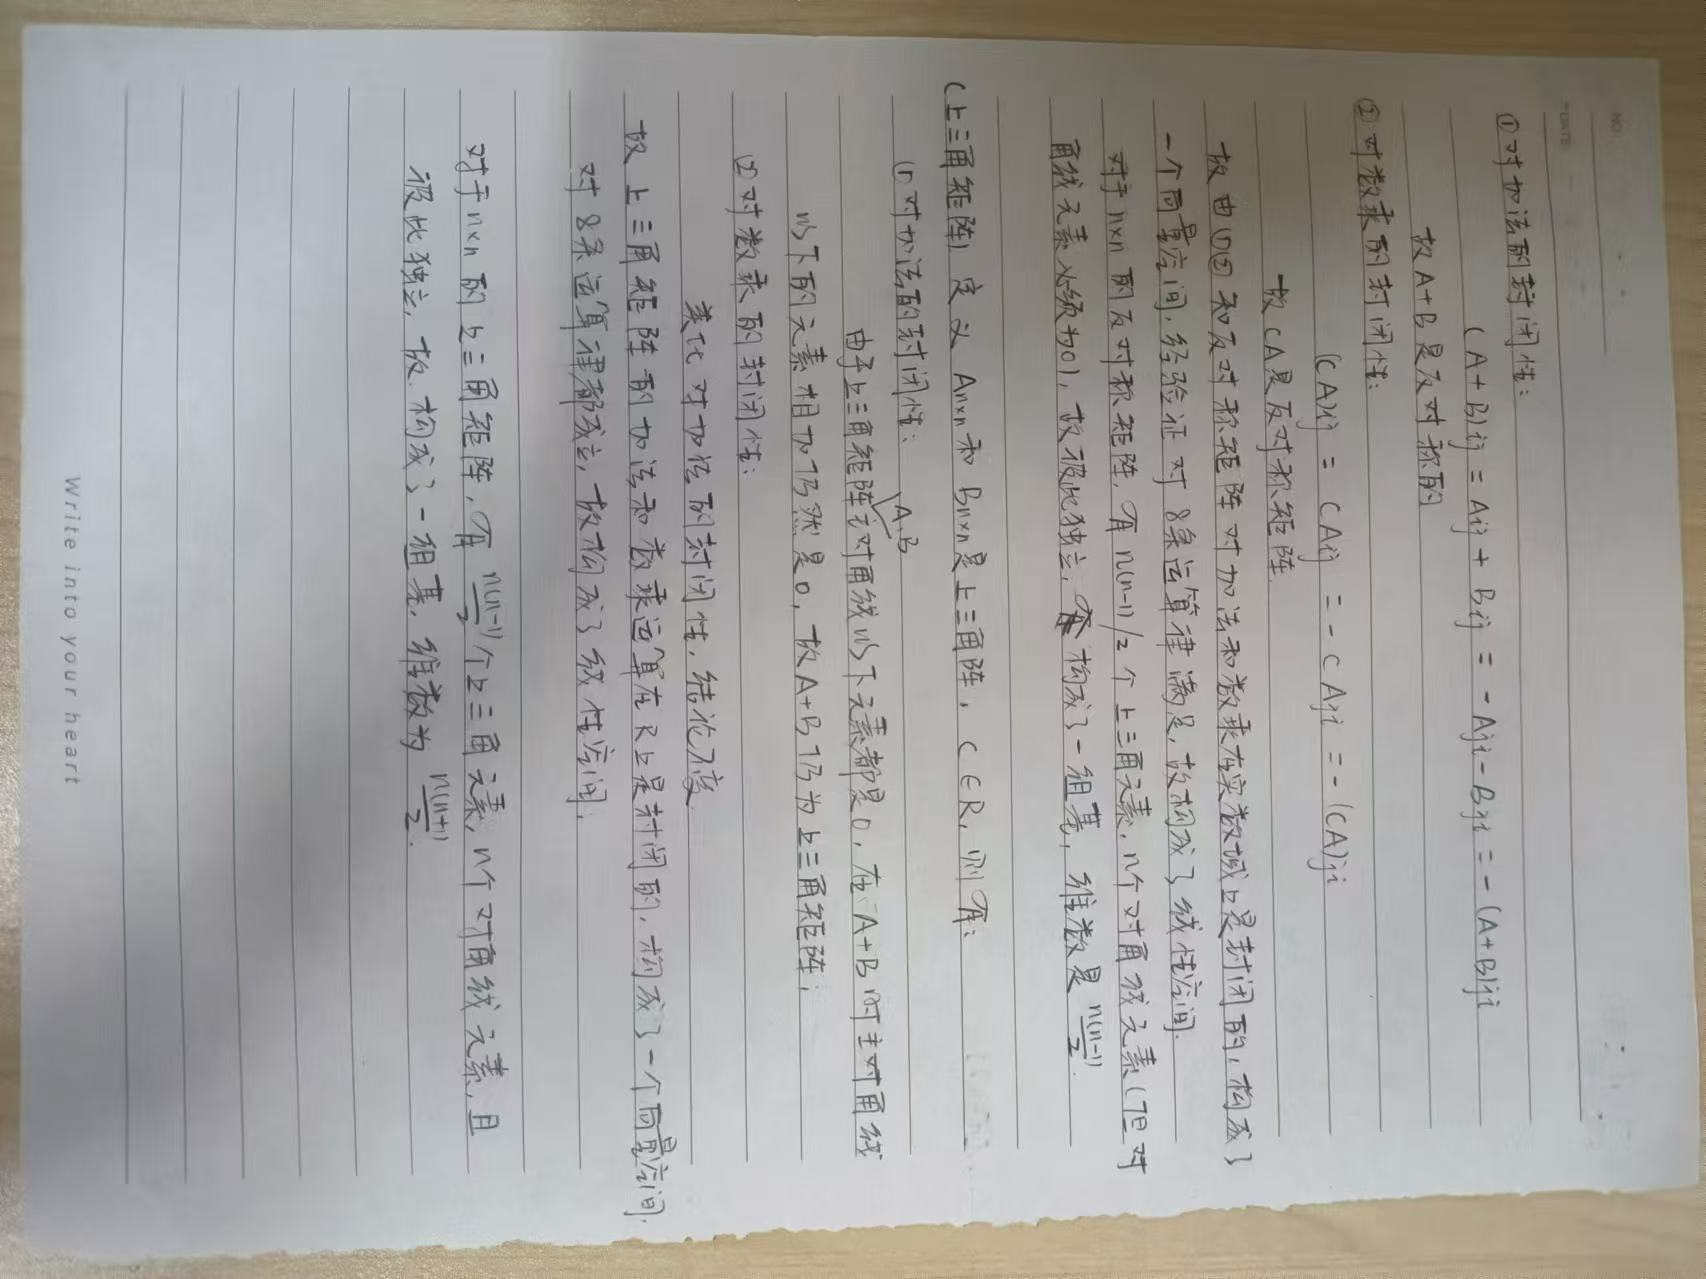 NO.
DATE
①对加法的封闭性：
(A+B)ij = Aij + Bij = -Aji - Bji = -(A+B)ji
故A+B是反对称的
②对数乘的封闭性：
(CA)ij = CAij = -CAji = -(CA)ji
故CA是反对称矩阵.
故由①②和反对称矩阵对加法和数乘在实数域上是封闭的，构成了
一个向量空间，经验证对8条运算律满足，故构成了线性空间.
对于n×n的反对称矩阵，有n(n-1)/2个上三角元素，n个对角线元素(但对
角线元素必须为0)，故彼此独立，构成了一组基，维数是n(n-1)/2.
(上三角矩阵) 定义An×n和Bn×n是上三角阵，C∈R，则有：
(1)对加法的封闭性：
由于上三角矩阵A,B主对角线以下元素都是0，在A+B时主对角线
以下的元素相加仍然是0，故A+B仍为上三角矩阵；
(2)对数乘的封闭性：
类比对加法的封闭性，结论不变
故上三角矩阵的加法和数乘运算在R上是封闭的，构成了一个向量空间，
对8条运算律都成立，故构成了线性空间；
对于n×n的上三角矩阵，有n(n-1)/2个上三角元素，n个对角线元素，且
彼此独立，故构成了一组基，维数为n(n+1)/2.
Write into your heart